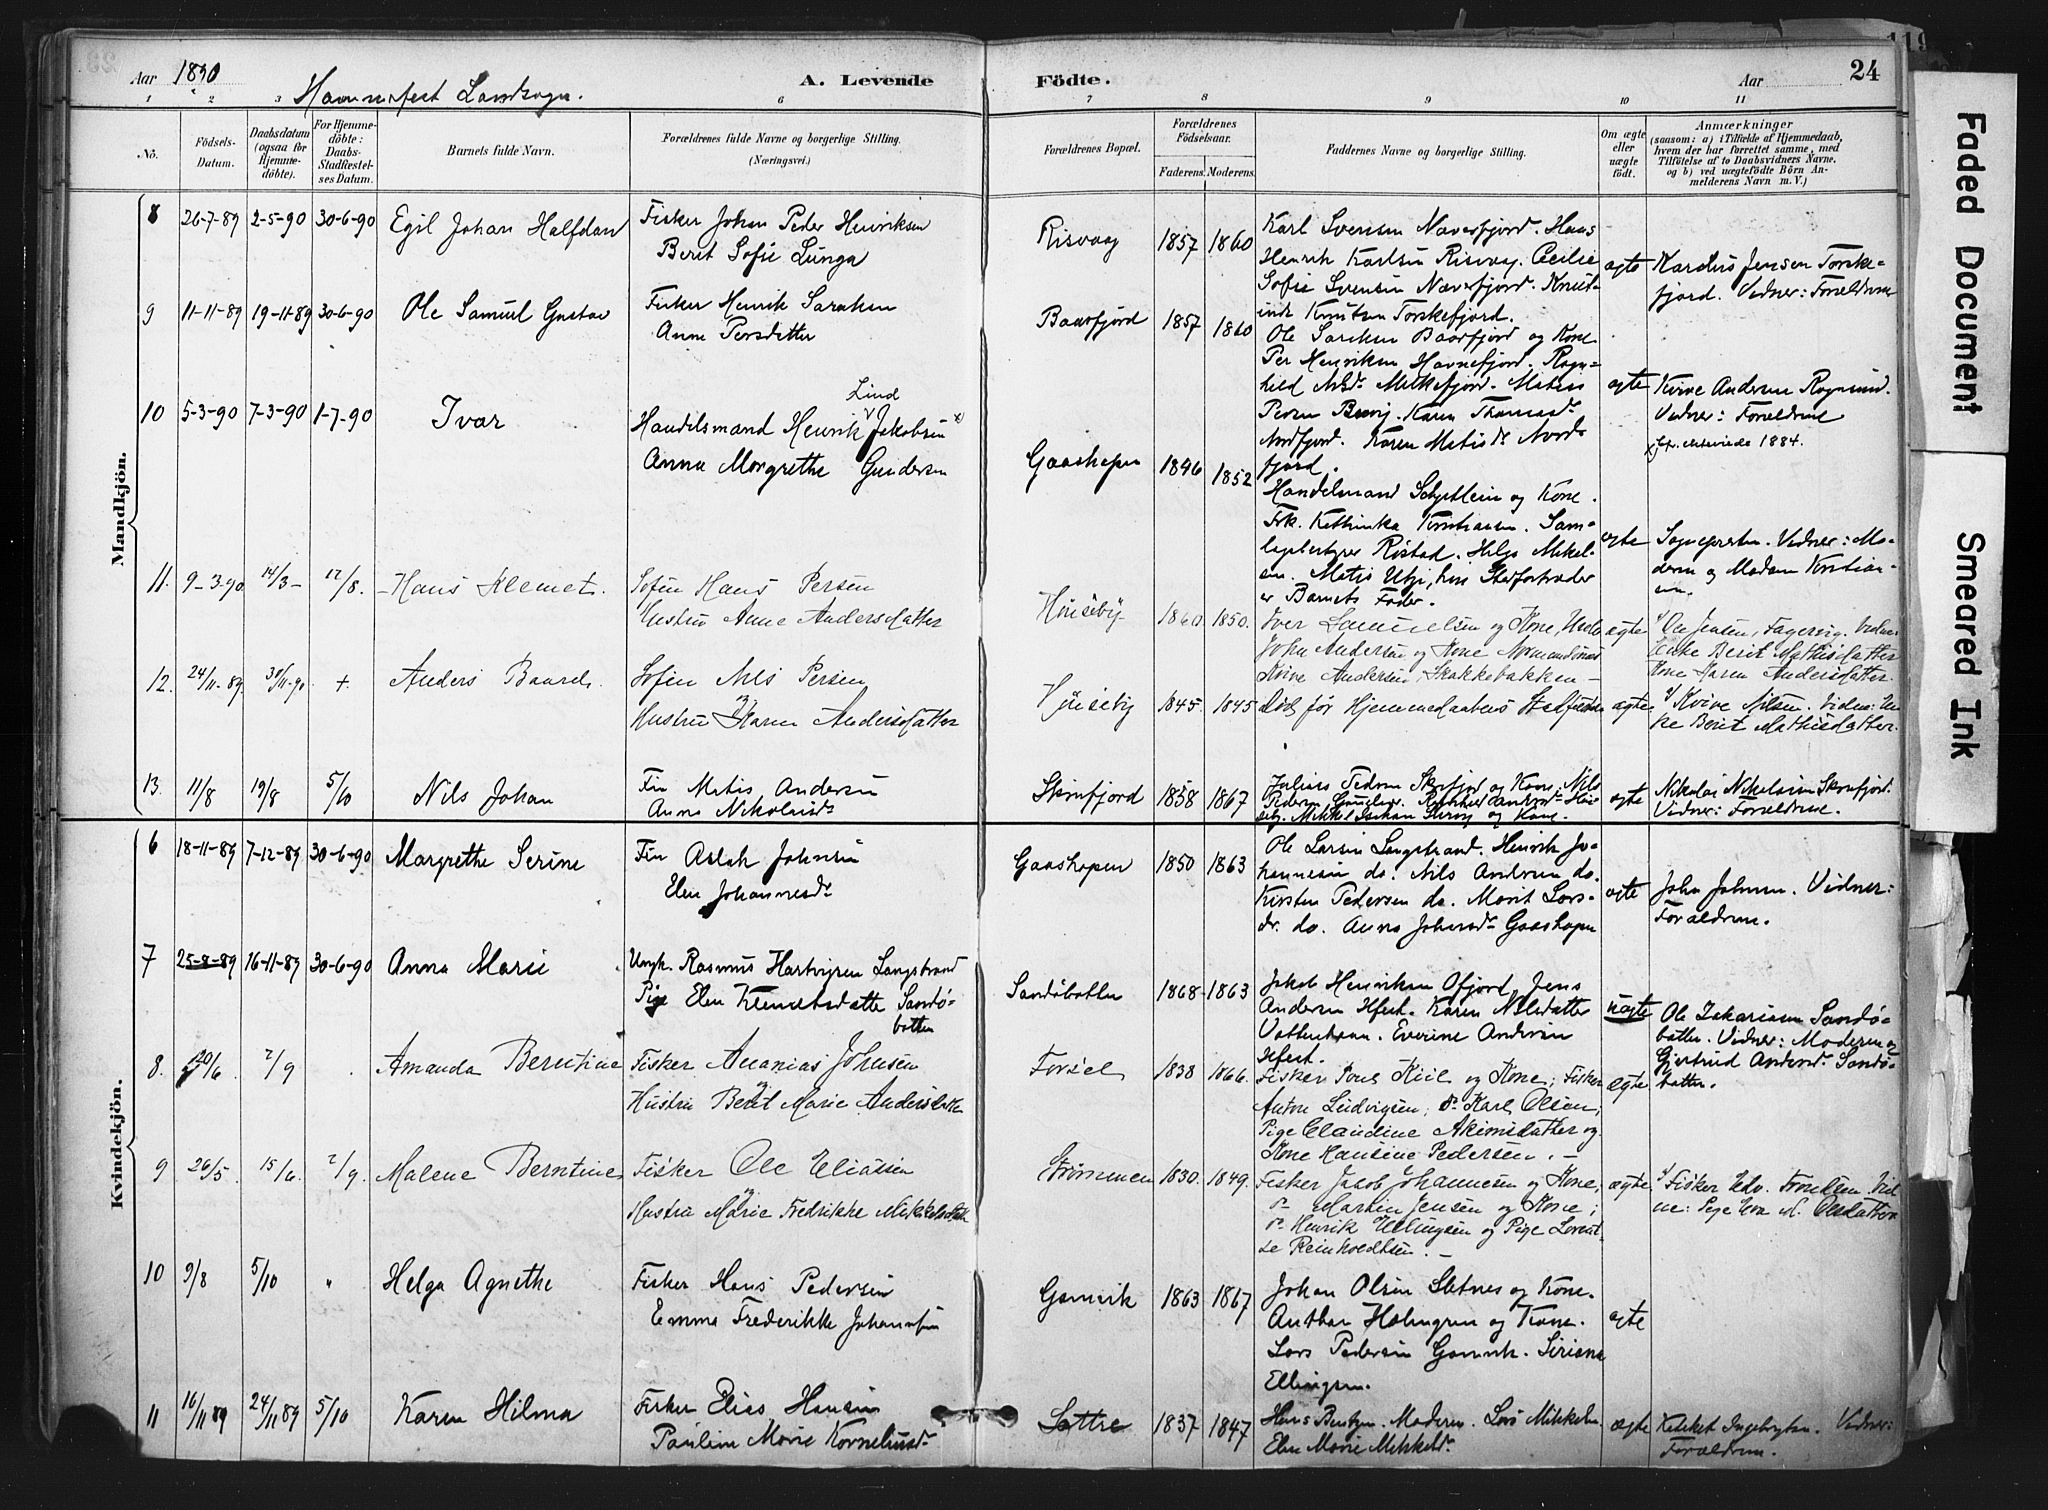 Aar 1890
A. Levende Födte.
Aar
24
119
Hammerfest Landsogn.
1 2 3 6 7 8 9 10 11
No.
Födsels-Datum.
Daabsdatum (ogsaa for Hjemmedöbte).
For Hjemmedöbte: Daabs-Stadfæstelses Datum.
Barnets fulde Navn.
Forældrenes fulde Navne og borgerlige Stilling.
(Næringsvei.)
Forældrenes Bopæl.
Forældrenes Födselsaar.
Faderens. Moderens.
Faddernes Navne og borgerlige Stilling.
Om ægte eller uægte födt.
Anmærkninger
(saasom: a) i Tilfælde af Hjemmedaab, hvem der har forrettet samme, med Tilföielse af to Daabsvidners Navne, og b) ved uægtefödte Börn Anmelderens Navn m. V.)
Mandkjön.
8 26-7-89 2-5-90 30-6-90 Egil Johan Halfdan
Fisker Johan Peder Henriksen
Berit Sofie Lunga
Risvaag 1857 1860
Karl Svensen Naverfjord. Hans
Henrik Karlsen Risvag. Cecilie
Sofie Svensen Næverfjord.
Knutsen Torskefjord.
ægte
Kardius Jensen Torskefjord. Vidner: Forældrene
9 11-11-89 19-11-89 30-6-90 Ole Samuel Gustav
Fisker Henrik Saraksen
Anne Persdatter
Baarfjord 1857 1860
Ole Sarksen Baarfjord og Kone
Per Henriksen Havnefjord.
Melkefjord. Matias
Nordfjord. Karen Matisdr. Nordfjord.
ægte
Kirve Andersen Rognsund.
Vidner: Forældrene
10 5-3-90 7-3-90 1-7-90 Ivar
Lind
Handelsmand Henrik Jakobsen x)
Anna Margrethe Gundersen
Gaashopen 1846 1852
Handelsmand og Kone.
Frk. Kathinka Kristiansen.
Röstad. Helga Mikkelsen. Matis Utsi, hvis Stedfortræder
er Barnets Fader.
ægte
x) 1884.
Sognepresten. Vidner: Moderen og Madam Kristiansen.
11. 9-3-90 14/3- 12/8. Hans Klemet.
Søfin Hans Persen
Hustru Anne Andersdatter
Hønseby 1860 1850.
Iver Samuelsen og Kone,
John Andersen og Kone
Kirve Andersen, Skakkebakken -
ægte
Ole Jensen, Fagervig. Vidne:
Enke Berit Mathisdatter
Kone Karen Andersdatter.
12. 24/11-89. 30/11-90 + Anders Baard.
Søfin Nils Persen
og
Hustru Karen Andersdatter
Hønseby 1845. 1845
Död før Hjemmedaabens Stadfæstelse
ægte
Kvive Nilsen. Vidne: Enke Berit Mathisdatter.
13. 11/8 19/8 5/10 Nils Johan
Fin Matis Andersen
Anna Nikolaisdr.
Skrufjord 1858 1867
Julius Pedersen og Kone, Nils
Pedersen
og Kone.
ægte
Nikolai Nikolaisen Skrufjord.
Vidner: Forældrene.
Kvindekjön.
6 18-11-89 7-12-89 30-6-90 Margrethe Serine
Fin Aslak Johnsen
Elen Johannesdr
Gaashopen 1850 1863
Ole Larsen Langstrand. Henrik Johannesen do. Nils Andersen do.
Kirsten Pedersen do. Marit Larsdr. do. Anna Johnsdr Gaashopen
ægte
John Johnsen. Vidner:
Forældrene.
7 25-8-89 16-11-89 30-6-90 Anna Marie
Ungk. Rasmus Hartvigsen Langstrand
Pige Elen Klemetsdatter Sandøbotten
Sandöbotten 1868 1863
Jakob Henriksen Ofjord, Jens
Andersen Hfest. Karen Nilsdatter
Everine Andersen
Hfest.
uægte
Ole Zakariasen Sandøbotten. Vidner: Moderen og
Gjertrud Andersdr Sandøbotten.
8. 20/6 2/9 Amanda Berntine
Fisker Ananias Johnsen
og
Hustru Berit Marie Andersdatter
Forsøl 1838 1866.
Fisker Kiil og Kone; Fisker
Anton Ludvigsen; do. Karl Olsen;
Pige Claudine Akimsdatter og
Kone Hansine Pedersen. -
ægte
9 26/5 15/6 2/9. Malene Berntine
Fisker Ole Eliassen
og
Hustru Marie Fredrikke Mikkelsdatter
Strømmen 1830. 1849.
Fisker Jacob Johannesen og Kone;
do. Martin Jensen og Kone;
do. Henrik Ellingsen og Pige Lorentse Reinholdtsen. -
ægte
Fisker Edv. Trondsen. Vidne: Pige Eva M. Olsdatter
10 9/8 5/10 " Helga Agnethe
Fisker Hans Pedersen
Emma Frederikke Johannesen
Gamvik 1863 1867
Johan Olsen Sletnes og Kone.
Anthon Holmgren og Kone.
Lars Pedersen Gamvik. Seriane
Ellingsen.
ægte
11 16/11 89 24/11 89 5/10 Karen Hilma
Fisker Elias Hansen
Pauline Marie Korneliusdr
Sættre 1837 1847
Hans Bentzen. Moderen. Lars Mikkelsen.
Elen Marie Mikkelsdr.
ægte
Kateket Ingebrigtsen. Vidner:
Forældrene.
Faded Document
Smeared Ink